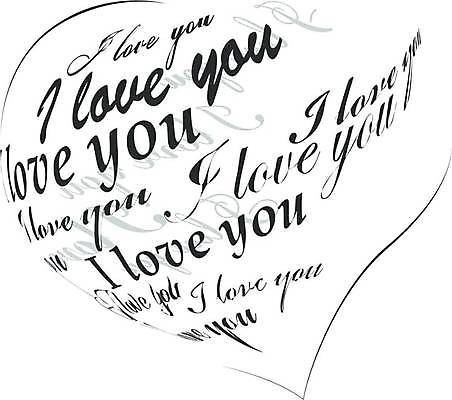 I love you
I love you
I love you
love you
I love you
I love you
I love you
I love you
I love you
I love you
you